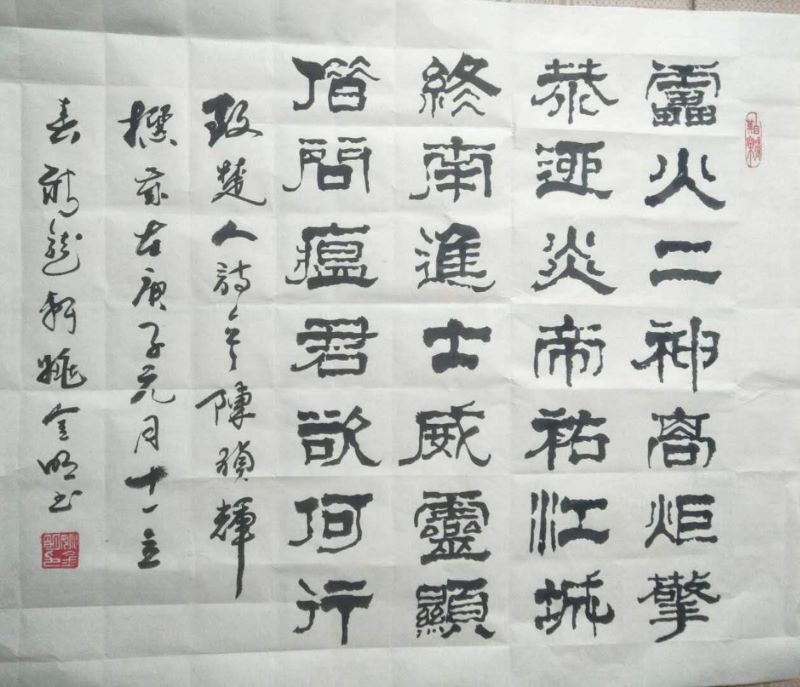 靁火二神高炬擎
恭迎炎帝祐江城
終南進士威靈顯
借問瘟君欲何行
致楚人詩之 陳禎輝
撰 歲在庚子元月十一立
春 軒 金明书